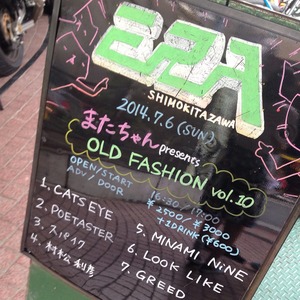 ERA
SHIMOKITAZAWA
2014.7.6 (SUN)
またちゃん presents
OLD FASHION vol.10
OPEN/START 16:30/17:00
ADV/DOOR ¥2500/¥3000
+1DRINK (¥600)
1. CATS EYE
2. POETASTER
3. スパイク
4. 村松利彦
5. MINAMI NiNE
6. LOOK LIKE
7. GREED